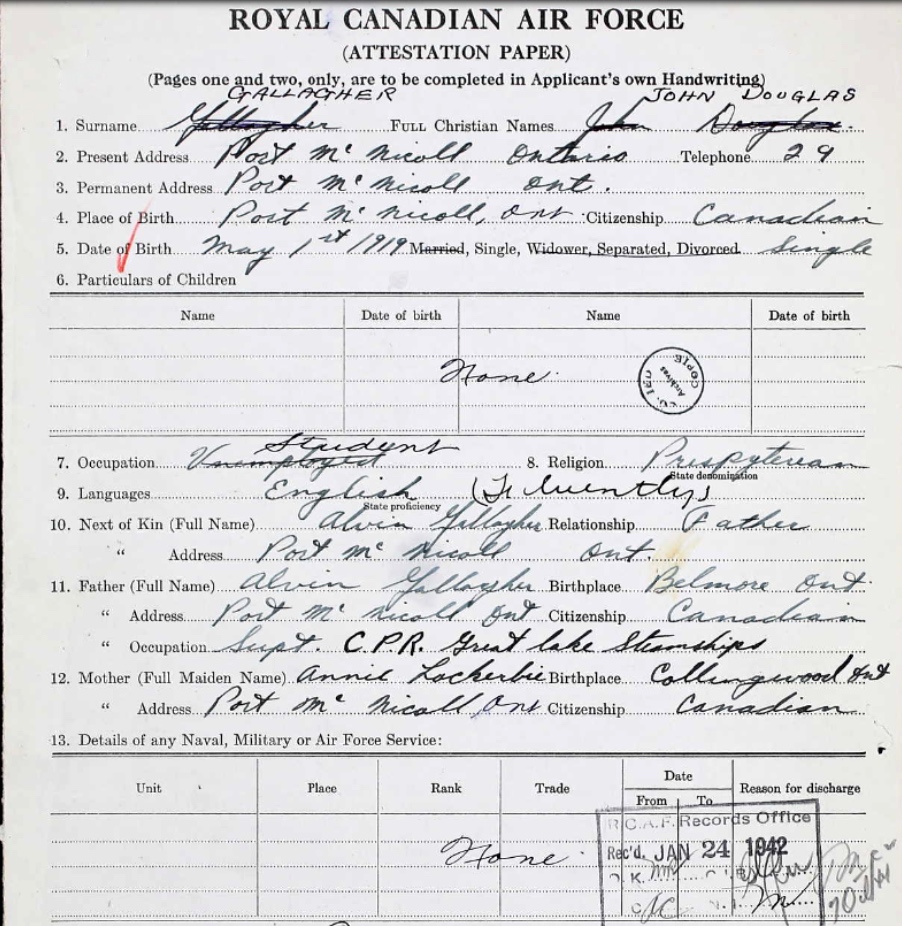 ROYAL CANADIAN AIR FORCE
(ATTESTATION PAPER)
(Pages one and two, only, are to be completed in Applicant's own Handwriting)
GALLAGHER JOHN DOUGLAS
1. Surname Gallagher FULL Christian Names John Douglas.
2. Present Address Port Mc Nicoll Ontario Telephone 29
3. Permanent Address Port Mc Nicoll Ont.
4. Place of Birth Port Mc Nicoll, Ont. Citizenship Canadian
5. Date of Birth May 1st 1919 Married, Single, Widower, Separated, Divorced Single
6. Particulars of Children
Name Date of birth Name Date of birth
None.
COPIED Archives
Student
7. Occupation Unemployed 8. Religion Prespyterean
State denomination
9. Languages English (Fluently)
State proficiency
10. Next of Kin (Full Name) Alvin Gallagher Relationship Father
" Address Port Mc Nicoll Ont.
11. Father (Full Name) Alvin Gallagher Birthplace Belmore Ont.
" Address Port Mc Nicoll Ont Citizenship Canadian
" Occupation Supt. C.P.R. Great lake Steamships
12. Mother (Full Maiden Name) Annie Lockerbie Birthplace Collingwood Ont
" Address Port Mc Nicoll, Ont Citizenship Canadian
13. Details of any Naval, Military or Air Force Service:
Unit Place Rank Trade Date Reason for discharge
From To
R.C.A.F. Records Office
None.
Rec'd. JAN 24 1942
O.K.